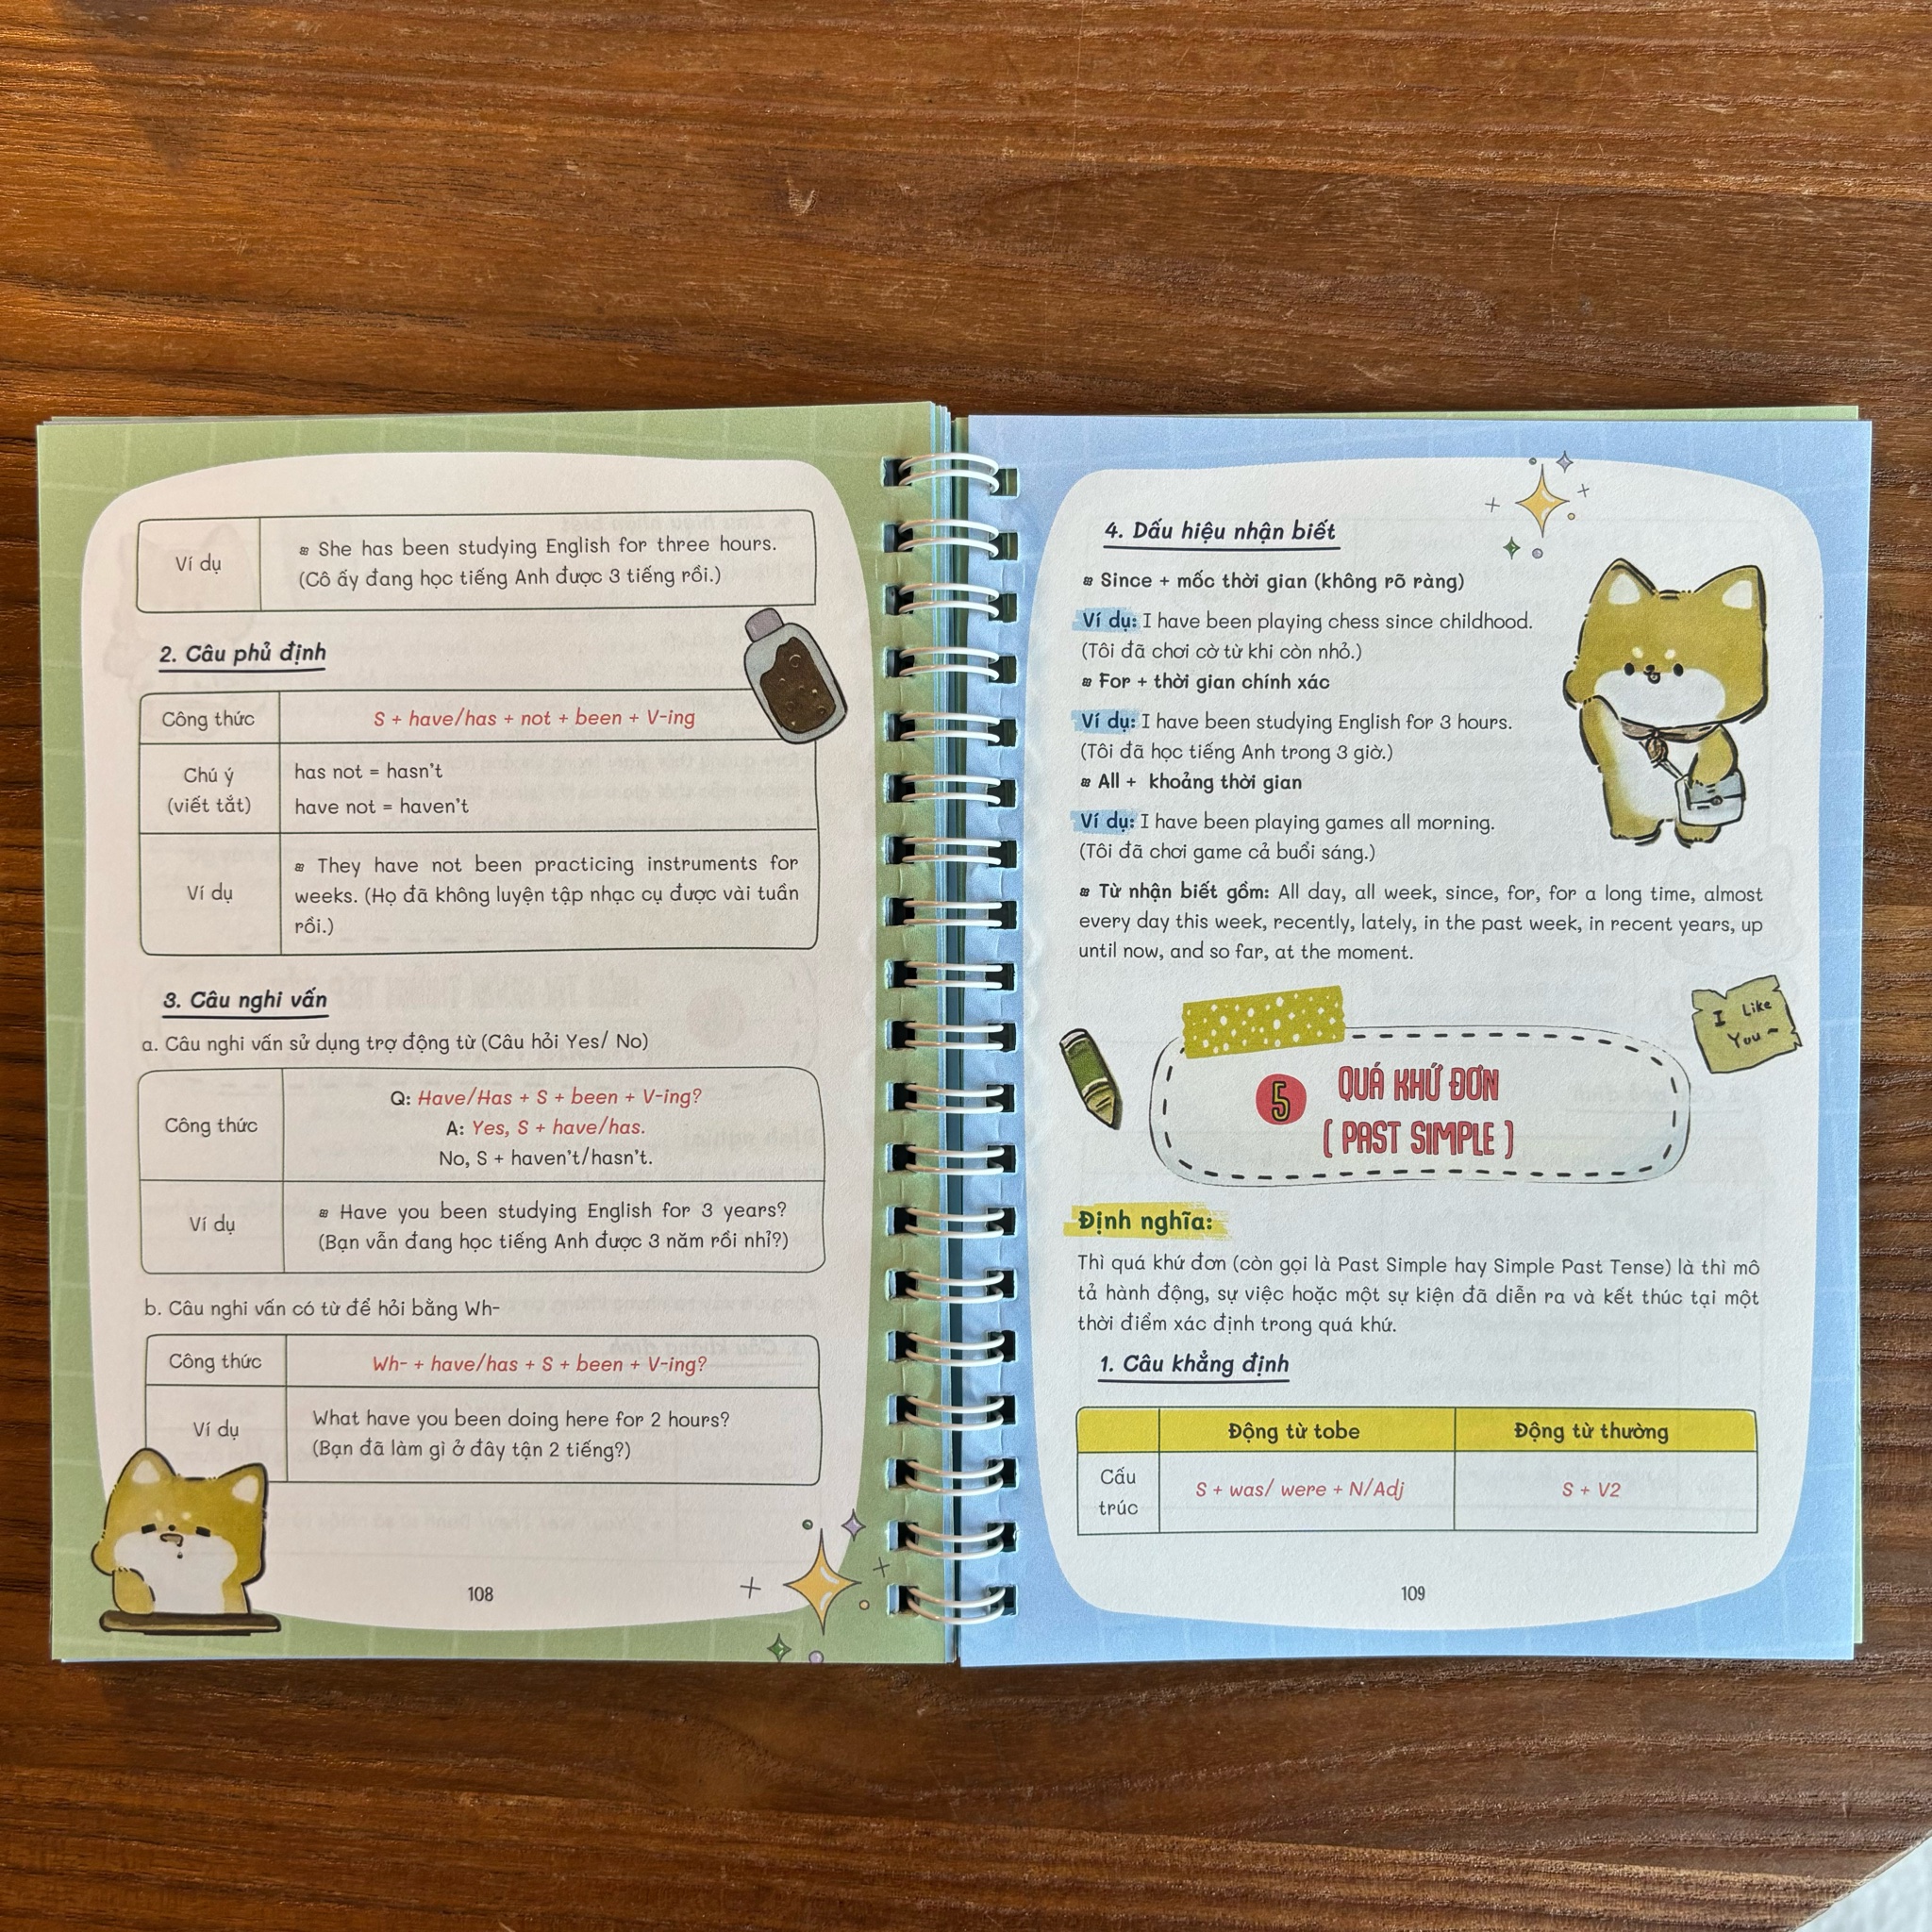 Ví dụ
She has been studying English for three hours.
(Cô ấy đang học tiếng Anh được 3 tiếng rồi.)
2. Câu phủ định
Công thức
S + have/has + not + been + V-ing
Chú ý
(viết tắt)
has not = hasn't
have not = haven't
Ví dụ
They have not been practicing instruments for
weeks. (Họ đã không luyện tập nhạc cụ được vài tuần
rồi.)
3. Câu nghi vấn
a. Câu nghi vấn sử dụng trợ động từ (Câu hỏi Yes/ No)
Công thức
Q: Have/Has + S + been + V-ing?
A: Yes, S + have/has.
No, S + haven't/hasn't.
Ví dụ
Have you been studying English for 3 years?
(Bạn vẫn đang học tiếng Anh được 3 năm rồi nhỉ?)
b. Câu nghi vấn có từ để hỏi bằng Wh-
Công thức
Wh- + have/has + S + been + V-ing?
Ví dụ
What have you been doing here for 2 hours?
(Bạn đã làm gì ở đây tận 2 tiếng?)
108
4. Dấu hiệu nhận biết
Since + mốc thời gian (không rõ ràng)
Ví dụ: I have been playing chess since childhood.
(Tôi đã chơi cờ từ khi còn nhỏ.)
For + thời gian chính xác
Ví dụ: I have been studying English for 3 hours.
(Tôi đã học tiếng Anh trong 3 giờ.)
All + khoảng thời gian
Ví dụ: I have been playing games all morning.
(Tôi đã chơi game cả buổi sáng.)
Từ nhận biết gồm: All day, all week, since, for, for a long time, almost
every day this week, recently, lately, in the past week, in recent years, up
until now, and so far, at the moment.
I Like
You~
5
QUÁ KHỨ ĐƠN
( PAST SIMPLE )
Định nghĩa:
Thì quá khứ đơn (còn gọi là Past Simple hay Simple Past Tense) là thì mô
tả hành động, sự việc hoặc một sự kiện đã diễn ra và kết thúc tại một
thời điểm xác định trong quá khứ.
1. Câu khẳng định
Động từ tobe
Động từ thường
Cấu
trúc
S + was/ were + N/Adj
S + V2
109